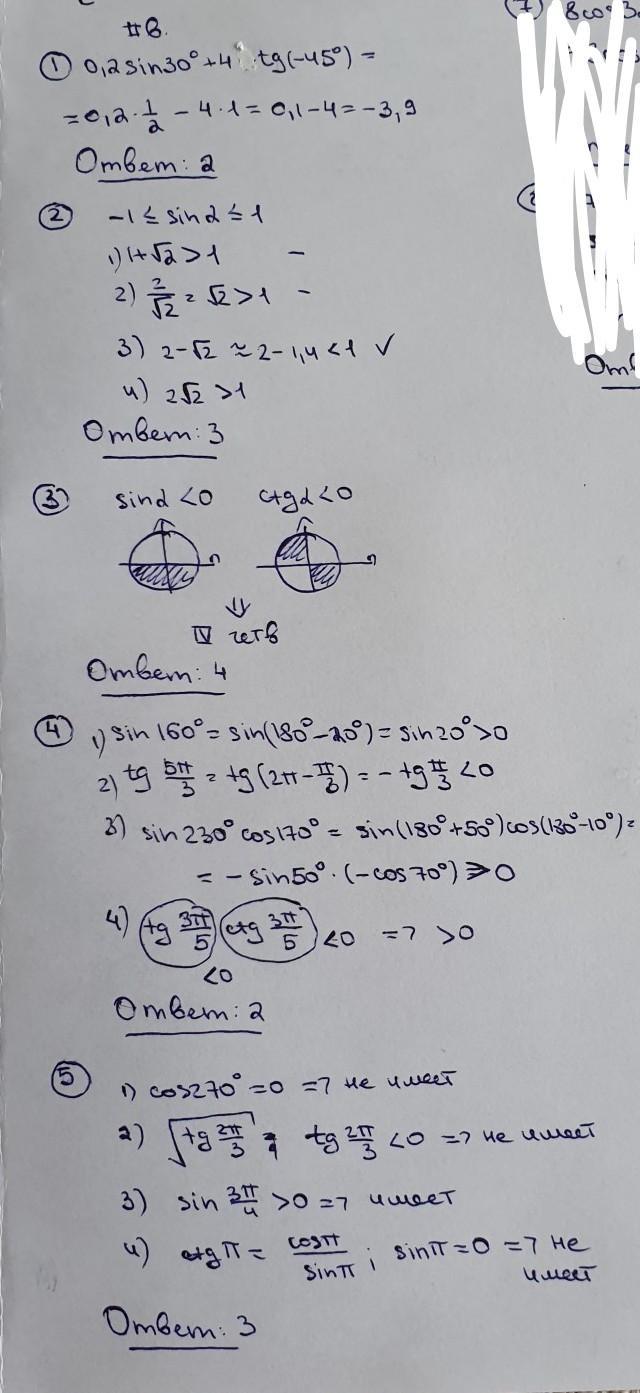 #в.
① 0,2sin30° + 4 · tg(-45°) =
= 0,2 · 1/2 - 4 · 1 = 0,1 - 4 = -3,9
Ответ: 2
② -1 ≤ sinα ≤ 1
1) 1+√2 > 1 -
2) 2/√2 = √2 > 1 -
3) 2-√2 ≈ 2-1,4 < 1 ✓
4) 2√2 > 1
Ответ: 3
③ sinα < 0 ctgα < 0
⇓
IV четв
Ответ: 4
④ 1) sin160° = sin(180°-20°) = sin20° > 0
2) tg 5π/3 = tg(2π - π/3) = -tg π/3 < 0
3) sin230° cos170° = sin(180°+50°)cos(180°-10°) =
= -sin50° · (-cos70°) > 0
4) tg 3π/5 ctg 3π/5 < 0 => > 0
< 0
Ответ: 2
⑤ 1) cos270° = 0 => не имеет
2) √tg 2π/3 ; tg 2π/3 < 0 => не имеет
3) sin 3π/4 > 0 => имеет
4) ctgπ = cosπ/sinπ ; sinπ = 0 => не
имеет
Ответ: 3
(7) 8cos3
Отв